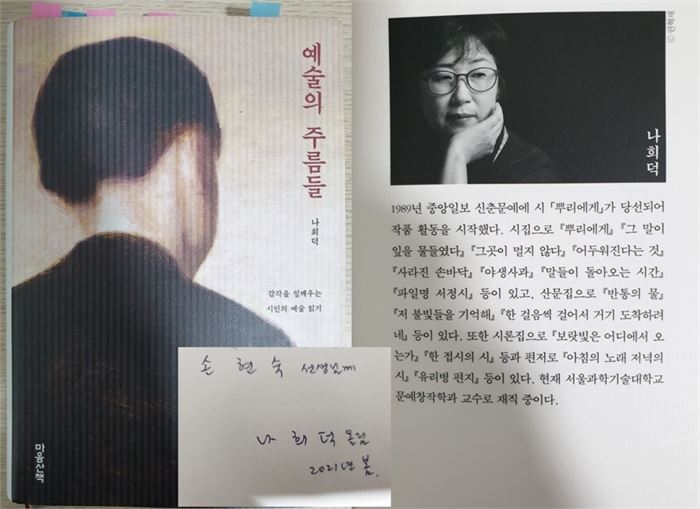 예술의 주름들
나희덕
감각을 일깨우는
시인의 예술 읽기
마음산책
손 현 숙 선생님께
나 희 덕 올림
2021년 봄.
나희덕
1989년 중앙일보 신춘문예에 시 「뿌리에게」가 당선되어
작품 활동을 시작했다. 시집으로 『뿌리에게』 『그 말이
잎을 물들였다』 『그곳이 멀지 않다』 『어두워진다는 것』
『사라진 손바닥』 『야생사과』 『말들이 돌아오는 시간』
『파일명 서정시』 등이 있고, 산문집으로 『반통의 물』
『저 불빛들을 기억해』 『한 걸음씩 걸어서 거기 도착하려
네』 등이 있다. 또한 시론집으로 『보랏빛은 어디에서 오
는가』 『한 접시의 시』 등과 편저로 『아침의 노래 저녁의
시』 『유리병 편지』 등이 있다. 현재 서울과학기술대학교
문예창작학과 교수로 재직 중이다.